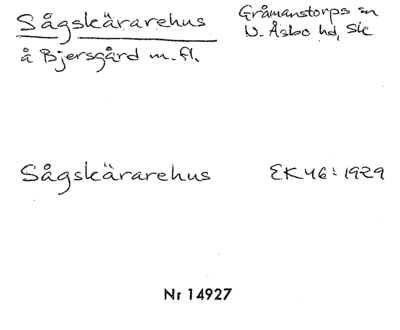 Sågskärarehus
Gråmanstorps sn
å Bjersgård m. fl.
N. Åsbo hd, Sk
Sågskärarehus
EK 46: 1929
Nr 14927